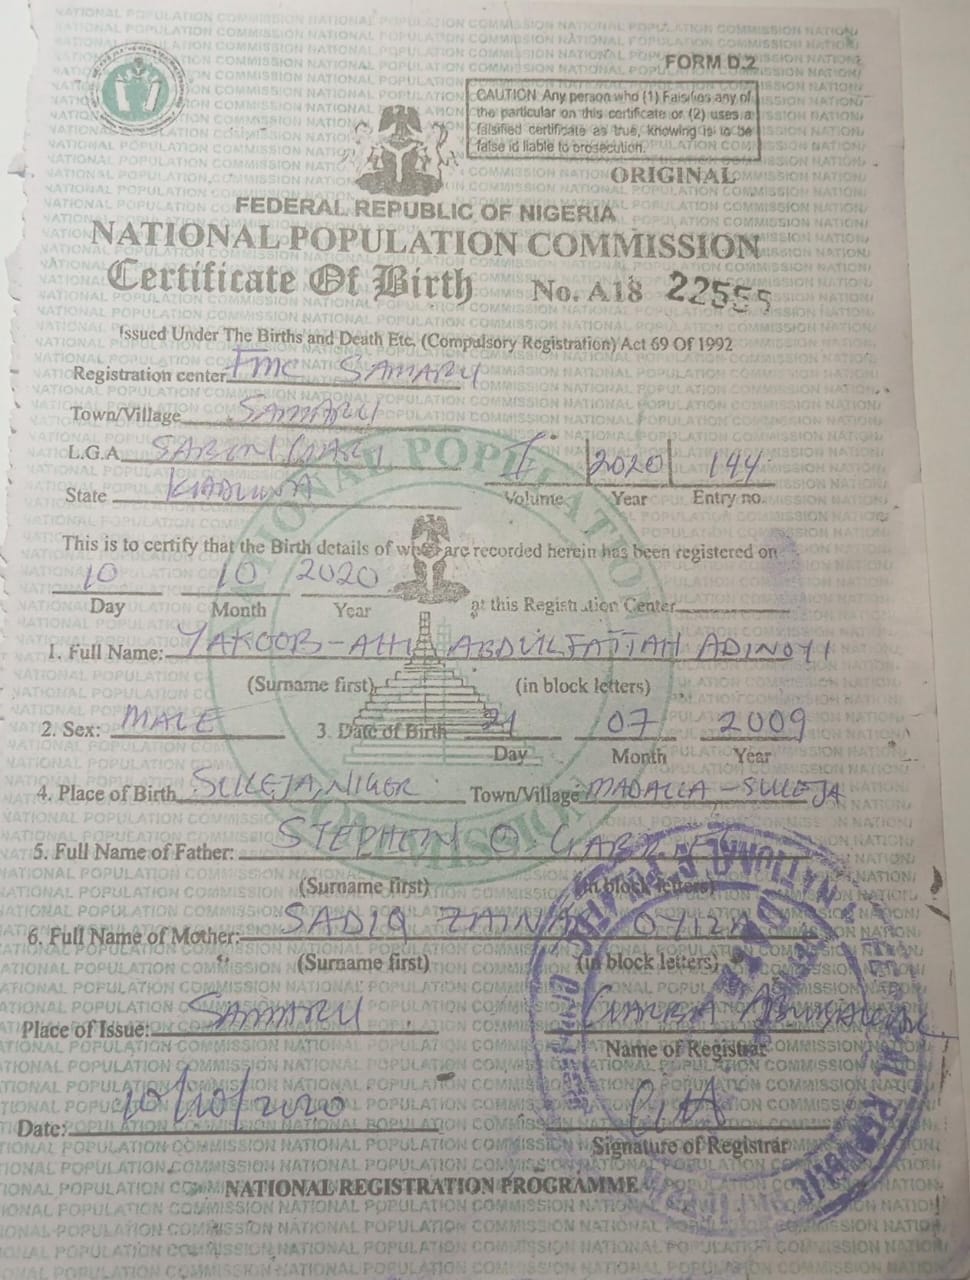 FORM D.2
CAUTION: Any person who (1) Falsifies any of
the particular on this certificate or (2) uses a
falsified certificate as true, knowing is to be
false id liable to prosecution.
ORIGINAL
FEDERAL REPUBLIC OF NIGERIA
NATIONAL POPULATION COMMISSION
Certificate Of Birth No. A18 22555
Issued Under The Births and Death Etc. (Compulsory Registration) Act 69 Of 1992
Registration center FMC SAMARU
Town/Village SAMARU
L.G.A SABON GARI
State KADUNA
I 2020 144
Volume Year Entry no.
This is to certify that the Birth details of whom are recorded herein has been registered on
10 10 2020
Day Month Year at this Registration Center
1. Full Name: YAKOOB-AHI ABDULFATTAH ADINOYI
(Surname first) (in block letters)
2. Sex: MALE 3. Date of Birth 21 07 2009
Day Month Year
4. Place of Birth SULEJA, NIGER Town/Village MADALLA - SULEJA
5. Full Name of Father: STEPHEN O. GABRIEL
(Surname first) (in block letters)
6. Full Name of Mother: SADIQ ZAINAB
(Surname first) (in block letters)
Place of Issue: SAMARU
Name of Registrar
Date: 10/10/2020
Signature of Registrar
NATIONAL REGISTRATION PROGRAMME
NATIONAL POPULATION COMMISSION